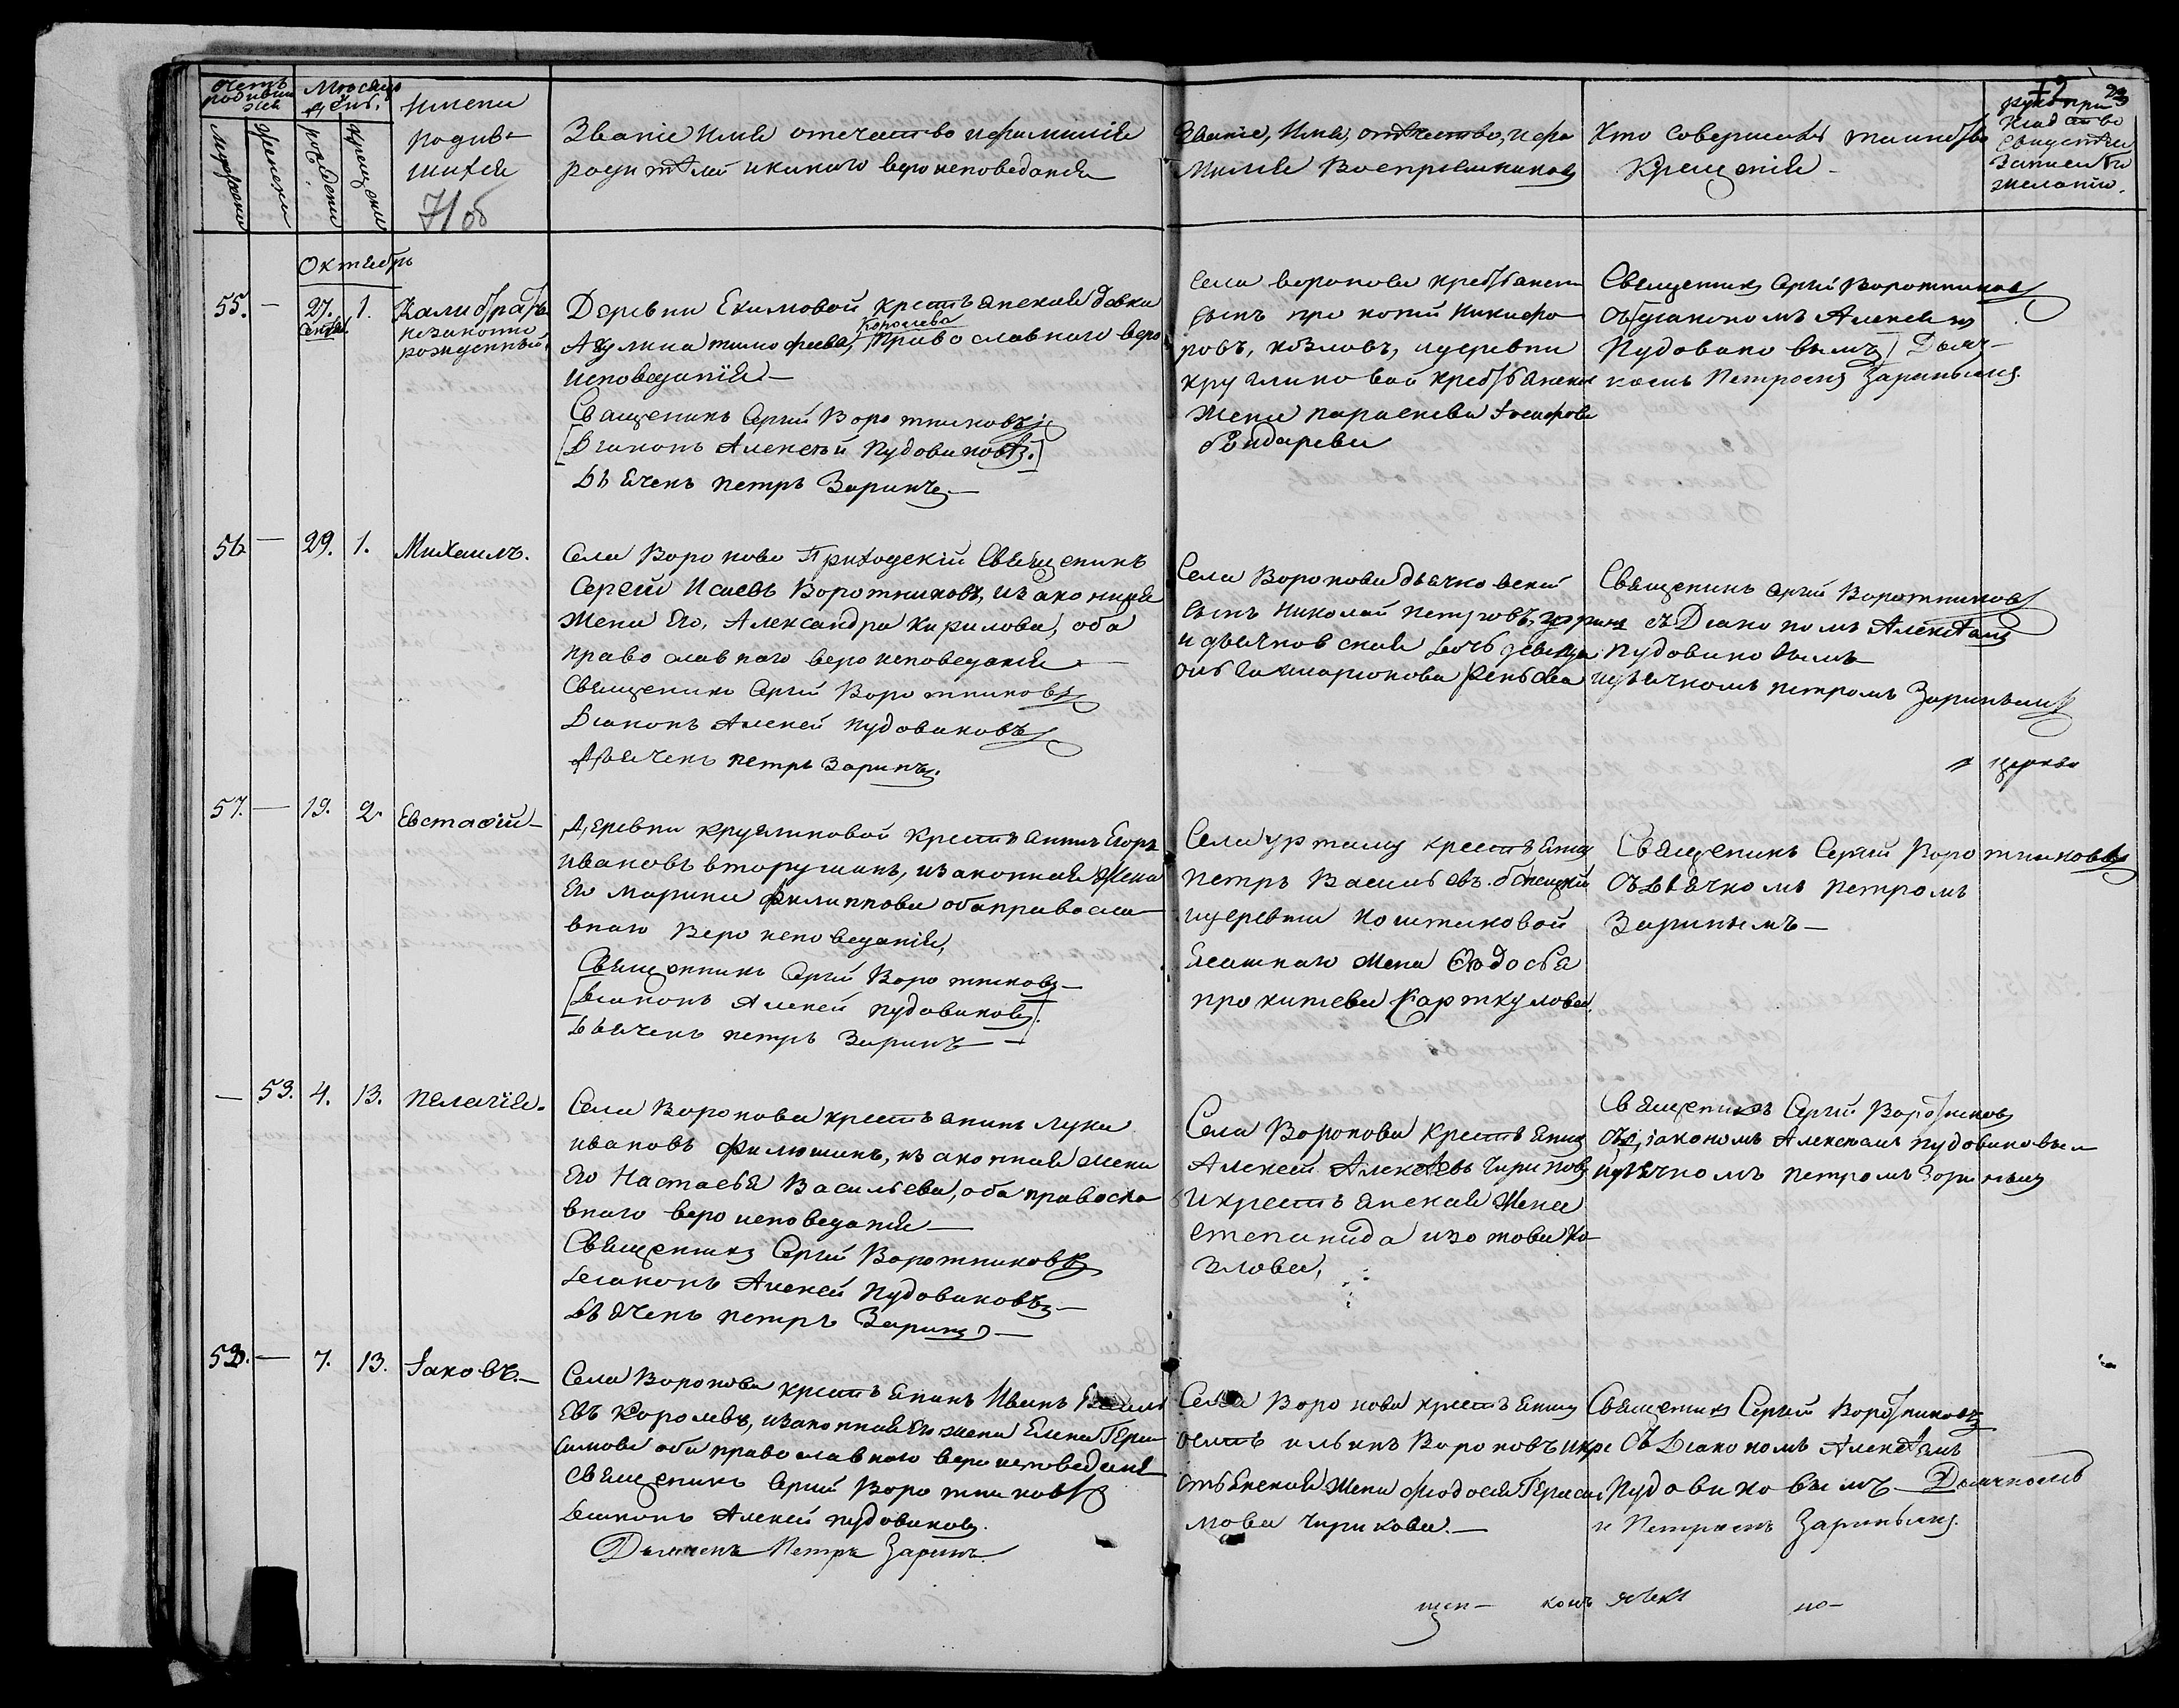 Счетъ родившихся
Мужеска
Женска
Мѣсяцъ и день
рожденія
крещенія
Имена
родив-
шихся
71 об
Званіе имя отечество и фамилія
родителей и какого вероисповеданія
Званіе, имя, отечество, и фа
милія Воспреемниковъ
Кто совершалъ таинство
Крещенія
72
23
рукопри
кладство
свидетелей
записи по
желанію.
Октябрь
55. — 27. 1.
сентяб.
Калистратъ
незаконно
рожденный.
Деревни Екимовой крестьянская девка
Королева
Акулина тимофеева, православнаго веро
исповеданія —
Священикъ Сергій Воротниковъ
[Діаконъ Алексѣй Пудовиковъ.]
Дьячекъ петръ Заринъ —
села воронова крестьянск
сынъ прокопій Никифо
ровъ, козловъ, и деревни
кругликовой крестьянская
жена параскева
бондарева
Священикъ Сергій Воротниковъ
Съ діакономъ Алексѣемъ
Пудовиковымъ Дьяч-
комъ Петромъ Заринымъ.
56. — 29. 1. Михаилъ.
Села Вороново Приходскій Священикъ
Сергей Исаевъ Воротниковъ, и законная
жена Его, Александра Кирилова, оба
православнаго вероисповеданія —
Священикъ Сергій Воротниковъ
Діаконъ Алексей Пудовиковъ
Дьячекъ петръ Заринъ.
Села Воронова дьячковскій
сынъ Николай Петровъ, заринъ
и дьячковская дочь девица
Священикъ Сергій Воротниковъ
съ Діакономъ Алексѣемъ
Пудовиковымъ
и дьячкомъ петромъ Заринымъ
церкви
57. — 19. 2. Евстафій —
Деревни кругликовой крестьянинъ Егоръ
Ивановъ вторушинъ, и законная жена
Его Марина Филиппова оба правосла
внаго Вероисповеданія,
Священникъ Сергій Воротниковъ —
[Діаконъ Алексей Пудовиковъ].
Дьячекъ петръ Заринъ —
Села уртаму крестьянинъ
петръ Васильевъ
и деревни
ясашнаго жена Ѳедосья
прокопьева Карткулова.
Священикъ Сергій Воротниковъ
съ Дьячкомъ петромъ
Заринымъ —
— 53. 4. 13. Пелагія.
Села Воронова крестьянинъ Лука
ивановъ Филюшинъ, и законная жена
Его Настасья Васильева, оба правосла
внаго вероисповеданія —
Священикъ Сергій Воротниковъ
Діаконъ Алексей Пудовиковъ —
Дьячекъ петръ Заринъ —
Села Воронова крестьянинъ
Алексей Алексеевъ Чириковъ
и крестьянская жена
степанида изотова ко
злова,
Священикъ Сергій Воротниковъ
съ діакономъ Алексѣемъ Пудовиковым
и дьячкомъ петромъ Зариным
53. — 7. 13. Іаковъ. —
Села Воронова крестьянинъ Иванъ Василь
евъ Королевъ, и законная Его жена Елена Гера
симова оба православнаго вероисповеданія
Священикъ Сергій Воротниковъ
Діаконъ Алексей Пудовиковъ.
Дьячекъ Петръ Заринъ
Села Воронова крестьянинъ
ильинъ Вороновъ и кре
стьянская жена Ѳеодосія Гераси
мова Чирикова. —
Священикъ Сергій Воротниковъ
съ Діакономъ Алексѣемъ
Пудовиковымъ Дьячкомъ
и Петромъ Заринымъ.